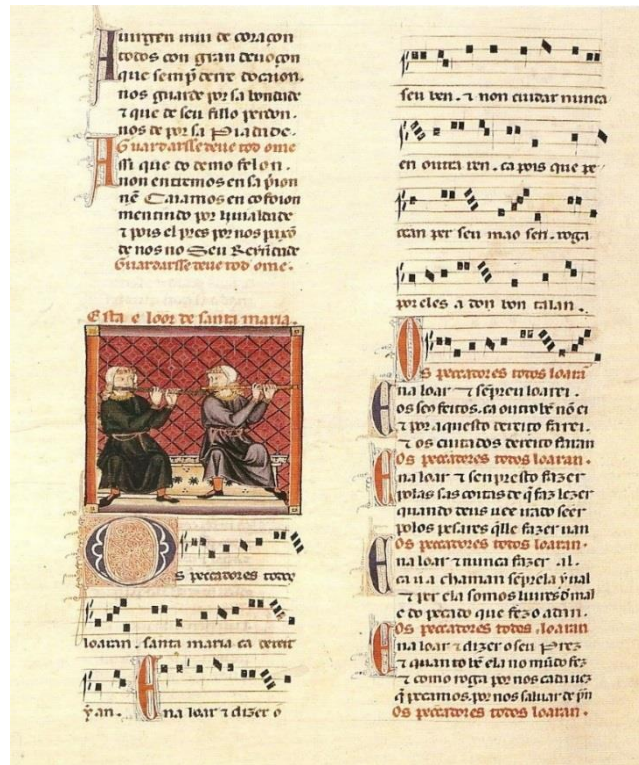 A uirgen mui de coraçon
todos con gran deuoçon
que semp̃ dente docaion.
nos guarde por sa bondade
⁊ que de seu fillo perdon.
nos de por sa Piadade.
Guardarsse deue tod ome
Assi que do demo felon.
non entremos en sa p̃ijon
mentindo por
⁊ pois el pres por nos
de nos no Seu
Guardarsse deue tod ome.
Esta e loor de santa maria.
Os peccadores todos
loaran. santa maria ca dereit
ỹ an. Ena loar ⁊ dizer o
seu ben. ⁊ non cuidar nunca
en outra ren. ca pois que pe
ccan per seu mao sen. roga
por eles a don bon talan.
Os peccadores todos loarã
Ena loar ⁊ sẽpreu loarei.
os seus feitos. ca outro bẽ nõ ei
⁊ por aquesto dereito farei.
⁊ os cuitados dereito faran
Os peccadores todos loaran.
Ena loar ⁊ seu presto fazer
polas sas contas de q̃ faz lezer
quando deus uee irado seer
polos pesares q̃lle fazer uan
Os peccadores todos loaran.
Ena loar ⁊ nunca fazer al.
ca u a chaman sẽprela ỹ ual
⁊ per ela somos liures d mal
e do pecado que fezo adan.
Os peccadores todos loaran.
Ena loar ⁊ dizer o seu Prez
⁊ quanto bẽ ela no mũdo fez
⁊ como roga por nos cada uez
q̃ pecamos. por nos saluar de
Os peccadores todos loaran.